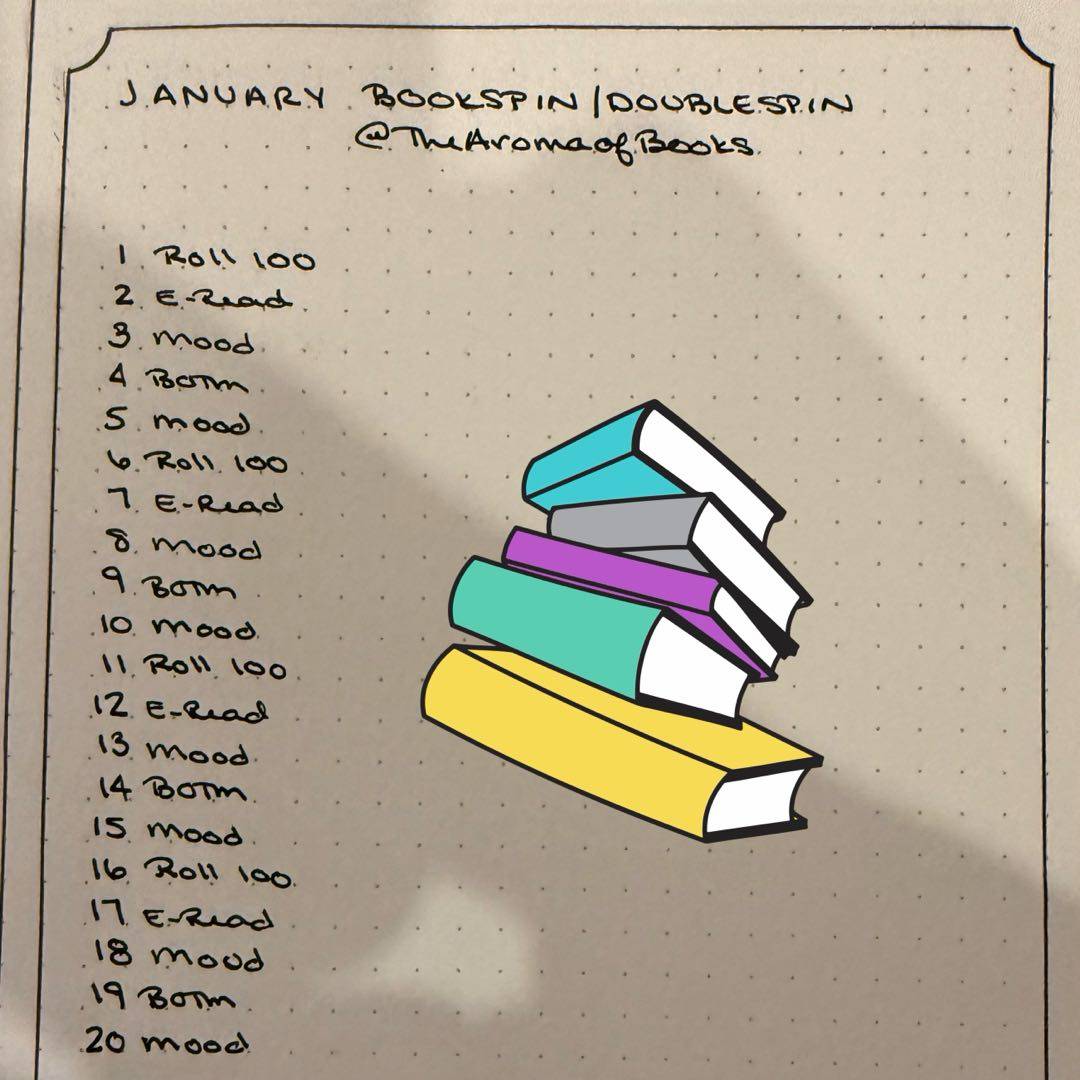 JANUARY BOOKSPIN/DOUBLESPIN
@TheAromaofBooks
1 Roll 100
2 E-Read
3 mood
4 BOTM
5 mood
6 Roll 100
7 E-Read
8 mood
9 BOTM
10 mood
11 Roll 100
12 E-Read
13 mood
14 BOTM
15 mood
16 Roll 100
17 E-Read
18 mood
19 BOTM
20 mood